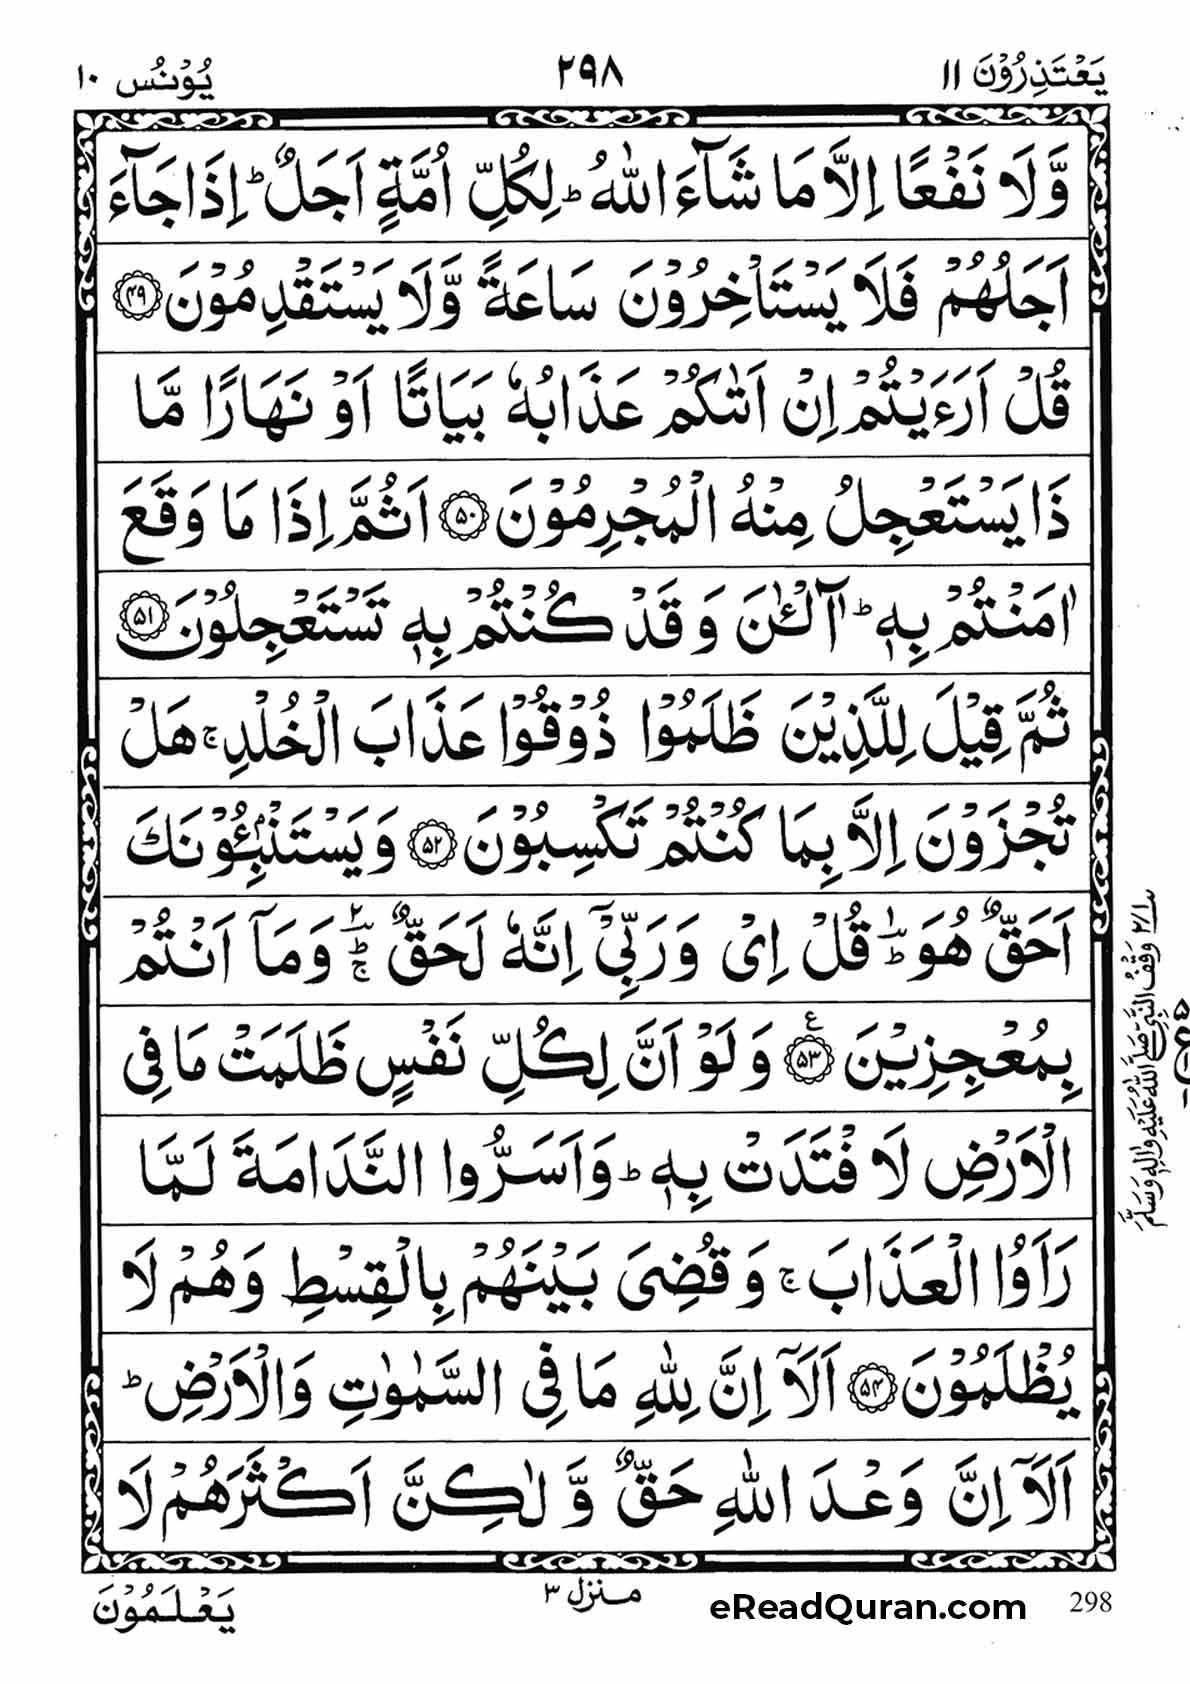 یَعْتَذِرُوْنَ ۱۱
۲۹۸
یُوْنُس ۱۰
وَّلَا نَفْعًا اِلَّا مَا شَآءَ اللّٰهُ ؕ لِكُلِّ اُمَّةٍ اَجَلٌ ؕ اِذَا جَآءَ
اَجَلُهُمْ فَلَا یَسْتَاْخِرُوْنَ سَاعَةً وَّلَا یَسْتَقْدِمُوْنَ ۴۹
قُلْ اَرَءَیْتُمْ اِنْ اَتٰىكُمْ عَذَابُهٗ بَیَاتًا اَوْ نَهَارًا مَّا
ذَا یَسْتَعْجِلُ مِنْهُ الْمُجْرِمُوْنَ ۵۰ اَثُمَّ اِذَا مَا وَقَعَ
اٰمَنْتُمْ بِهٖ ؕ آٰلْـٰٔنَ وَ قَدْ كُنْتُمْ بِهٖ تَسْتَعْجِلُوْنَ ۵۱
ثُمَّ قِیْلَ لِلَّذِیْنَ ظَلَمُوْا ذُوْقُوْا عَذَابَ الْخُلْدِ ۚ هَلْ
تُجْزَوْنَ اِلَّا بِمَا كُنْتُمْ تَكْسِبُوْنَ ۵۲ وَ یَسْتَنْۢبِـُٔوْنَكَ
اَحَقٌّ هُوَ ؕ قُلْ اِیْ وَ رَبِّیْۤ اِنَّهٗ لَحَقٌّ ؕ ۚ وَ مَاۤ اَنْتُمْ
بِمُعْجِزِیْنَ ۵۳ ع وَ لَوْ اَنَّ لِكُلِّ نَفْسٍ ظَلَمَتْ مَا فِی
الْاَرْضِ لَا فْتَدَتْ بِهٖ ؕ وَ اَسَرُّوا النَّدَامَةَ لَمَّا
رَاَوُا الْعَذَابَ ۚ وَ قُضِیَ بَیْنَهُمْ بِالْقِسْطِ وَ هُمْ لَا
یُظْلَمُوْنَ ۵۴ اَلَاۤ اِنَّ لِلّٰهِ مَا فِی السَّمٰوٰتِ وَ الْاَرْضِ ؕ
اَلَاۤ اِنَّ وَعْدَ اللّٰهِ حَقٌّ وَّ لٰكِنَّ اَكْثَرَهُمْ لَا
وَقْفُ النَّبِیِّ صَلَّی اللّٰهُ عَلَیْهِ وَاٰلِهٖ وَسَلَّمَ
یَعْلَمُوْنَ
منزل ۳
eReadQuran.com
298